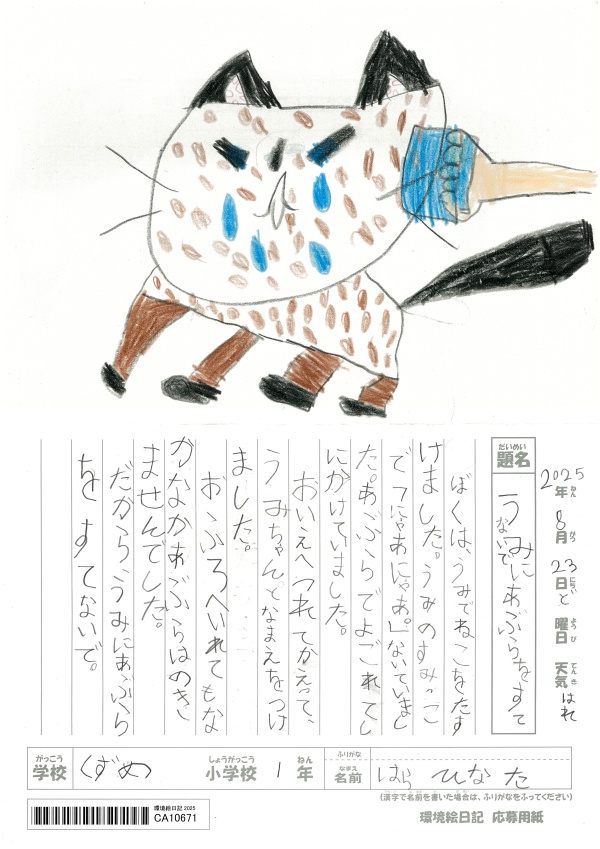 だいめい
題名
うみにあぶらをすて
ないで
2025年ねん 8月がつ 23日にち ど 曜日ようび 天気てんき はれ
ぼくは、うみでねこをたす
けました。うみのすみっこ
で「にゃあにゃあ。」ないていまし
た。あぶらでよごれてし
にかけていました。
おいえへつれてかえって、
うみちゃんとなまえをつけ
ました。
おふろへいれてもな
かなかあぶらはのきま
ませんでした。
だからうみにあぶら
をすてないで。
がっこう
学校
くずめ
しょうがっこう
小学校
1
ねん
年
ふりがな
なまえ
名前
はら ひなた
(漢字で名前を書いた場合は、ふりがなをふってください)
環境絵日記 2025
CA10671
環境絵日記 応募用紙